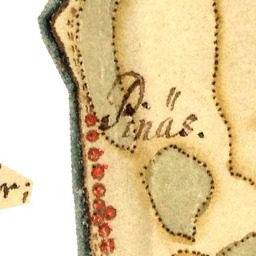 Pinäs.
r;